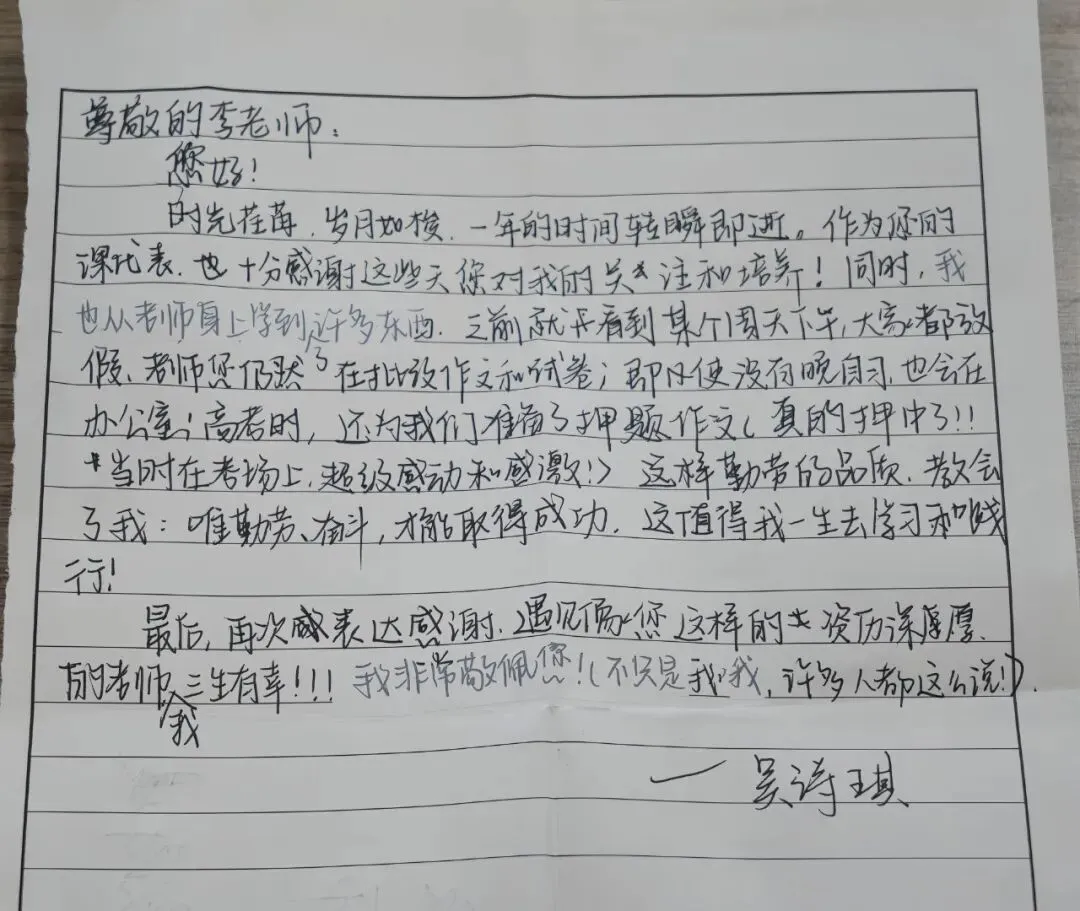 尊敬的李老师:
您好!
时光荏苒,岁月如梭,一年的时间转瞬即逝。作为您的
课代表,也十分感谢这些天您对我的关注和培养!同时,我
也从老师身上学到许多东西.之前就看到某个周天下午,大家都放
假,老师您仍然在批改作文和试卷;即使没有晚自习,也会在
办公室;高考时,还为我们准备了押题作文(真的押中了!!
当时在考场上,超级感动和感激!)这样勤劳的品质,教会
了我:唯勤劳、奋斗,才能取得成功.这值得我一生去学习和践
行!
最后,再次表达感谢.遇见您这样的资历深厚
的老师我三生有幸!!!我非常敬佩您!(不只是我哦,许多人都这么说!).
——吴诗琪